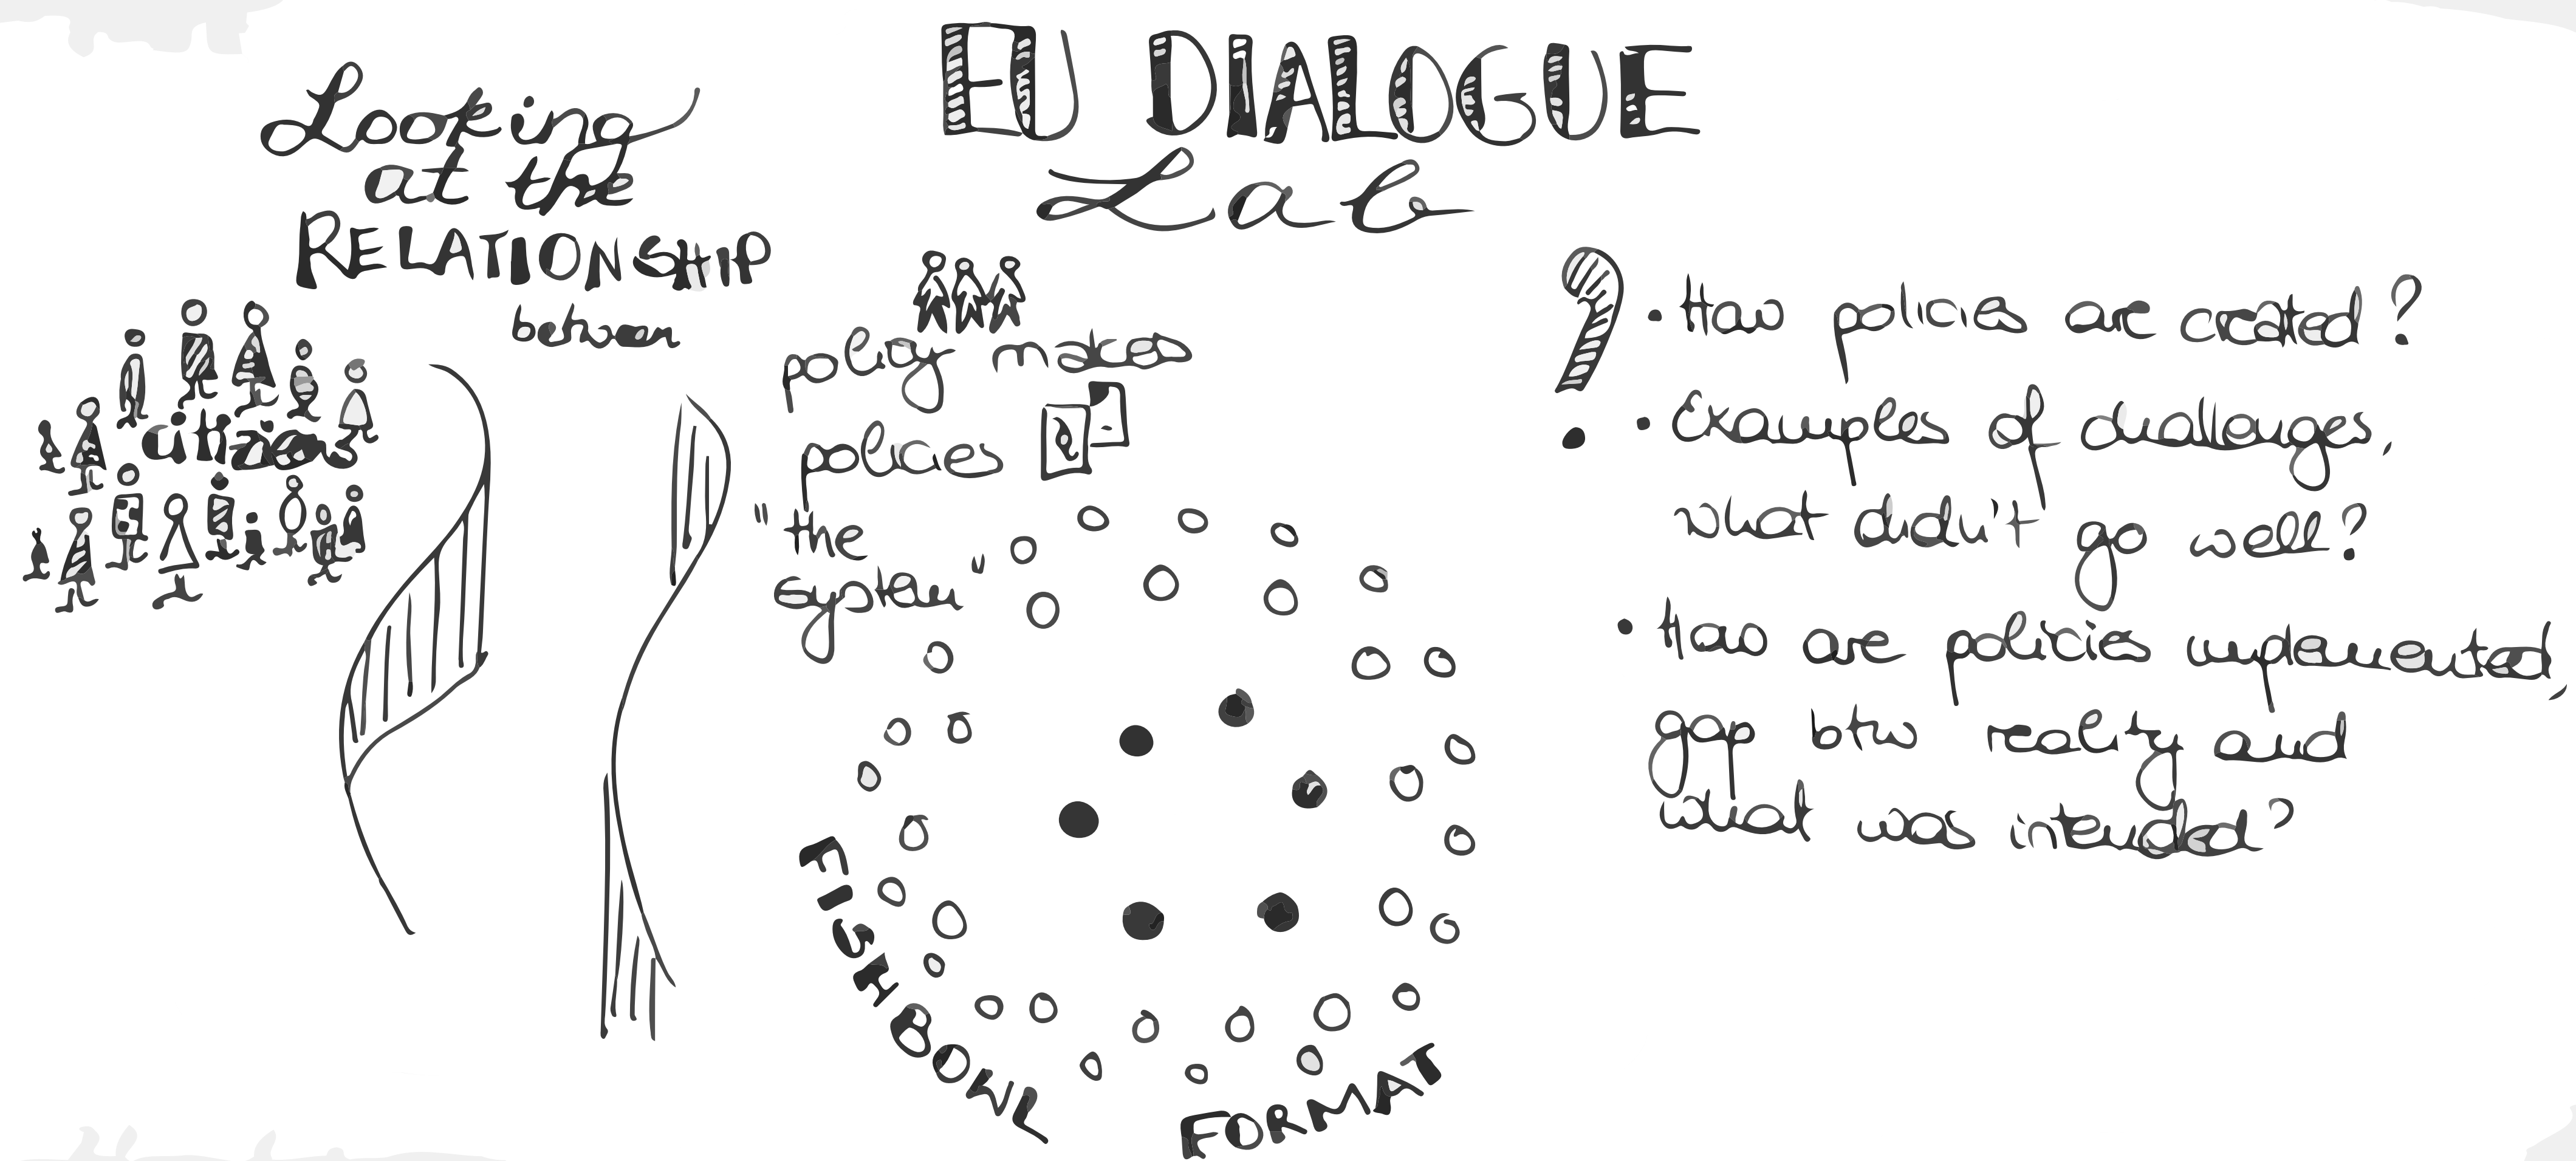 EU DIALOGUE
Lab
Looking
at the
RELATIONSHIP
between
citizens
policy makers
policies
"the
system"
FISHBOWL
FORMAT
? • How policies are created?
• Examples of challenges,
what didn't go well?
• How are policies implemented,
gap btw reality and
what was intended?